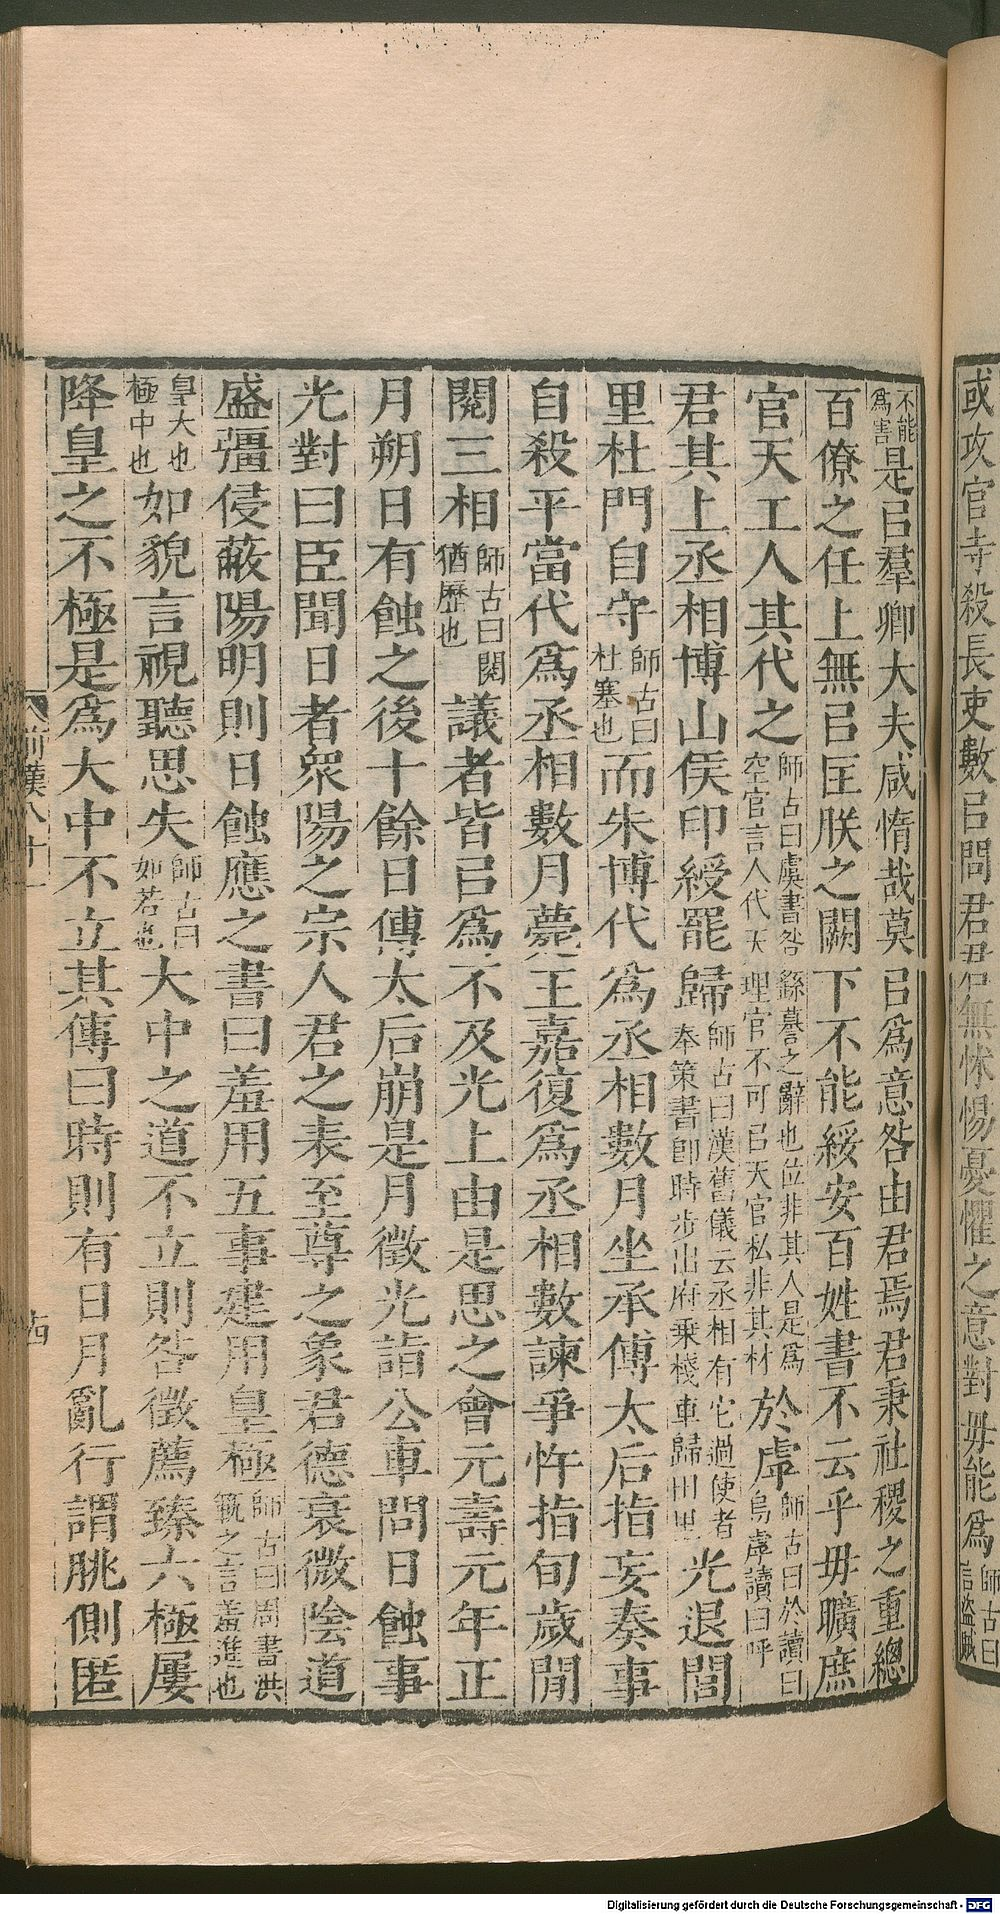 或攻官寺殺長吏數㠯問君君無怵惕憂懼之意對毋能爲師古曰言盜賊
不能爲害是㠯羣卿大夫咸惰哉莫㠯爲意咎由君焉君秉社稷之重總
百僚之任上無㠯匡朕之闕下不能綏安百姓書不云乎毋曠庶
官天工人其代之師古曰虞書咎繇謩之辭也位非其人是爲空官言人代天理官不可㠯天官私非其材於虖師古曰於讀曰烏虖讀曰呼
君其上丞相博山侯印綬罷歸師古曰漢舊儀云丞相有它過使者奉策書卽時步出府乘棧車歸州里光退閭
里杜門自守師古曰杜塞也而朱博代爲丞相數月坐承傅太后指妄奏事
自殺平當代爲丞相數月薨王嘉復爲丞相數諫爭忤指旬歲閒
閱三相師古曰閱猶歷也議者皆㠯爲不及光上由是思之會元壽元年正
月朔日有蝕之後十餘日傅太后崩是月徵光詣公車問日蝕事
光對曰臣聞日者衆陽之宗人君之表至尊之象君德衰微陰道
盛彊侵蔽陽明則日蝕應之書曰羞用五事建用皇極師古曰周書洪範之言羞進也
皇大也極中也如貌言視聽思失師古曰如若也大中之道不立則咎徵薦臻六極屢
降皇之不極是爲大中不立其傳曰時則有日月亂行謂朓側匿
前漢八十一
十四
Digitalisierung gefördert durch die Deutsche Forschungsgemeinschaft - DFG